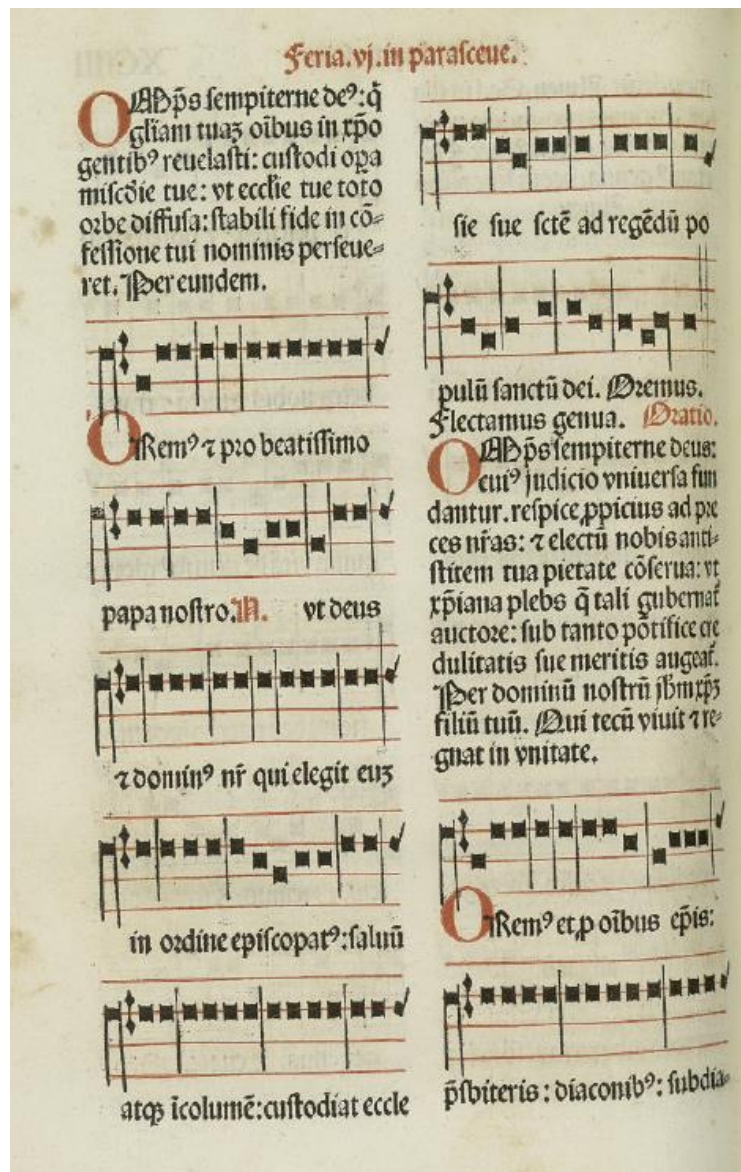 Feria.vj.in parasceue.
OMp̄s sempiterne deꝰ: q̄
gl̄iam tuaʒ oībus in xp̄o
gentibꝰ reuelasti: custodi oꝑa
miscd̄ie tue: vt eccl̄ie tue toto
orbe diffusa: stabili fide in cō-
fessione tui nominis perseue-
ret. Per eundem.
ORemꝰ ⁊ pro beatissimo
papa nostro. N. vt deus
⁊ dominꝰ nr̄ qui elegit euʒ
in ordine episcopatꝰ: saluū
atqʒ īcolumē: custodiat eccle
sie sue sctē ad regēdū po
pulū sanctū dei. Oremus.
Flectamus genua. Oratio.
OMp̄s sempiterne deus:
cuiꝰ judicio vniuersa fun
dantur. respice ꝓpicius ad pre
ces nr̄as: ⁊ electū nobis anti-
stitem tua pietate cōserua: vt
xp̄iana plebs q̄ tali gubernat̄
auctore: sub tanto pōtifice cre
dulitatis sue meritis augeat̄.
Per dominū nostrū jh̄m xp̄ʒ
filiū tuū. Qui tecū viuit ⁊ re-
gnat in vnitate.
ORemꝰ et ꝓ oībus ep̄is:
p̄sbiteris: diaconibꝰ: subdia-